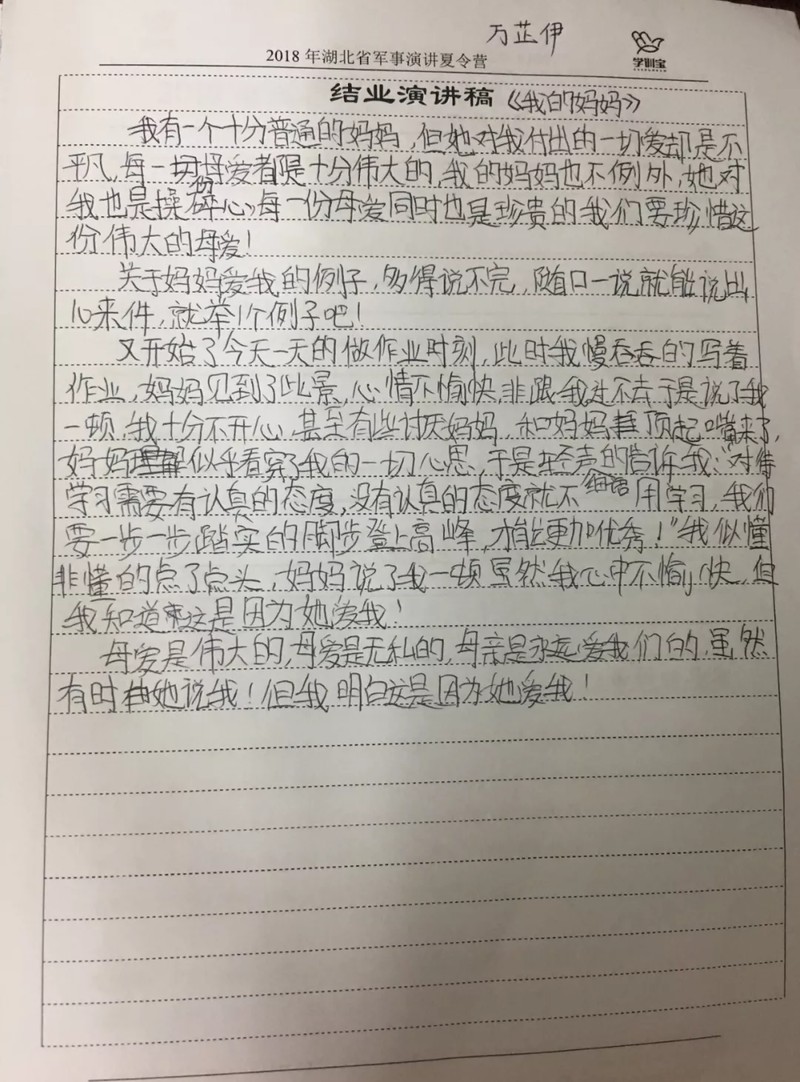 万芷伊
2018年湖北省军事演讲夏令营
学训宝
结业演讲稿《我的妈妈》
我有一个十分普通的妈妈，但她对我付出的一切爱却是不
平凡，每一份母爱都是十分伟大的，我的妈妈也不例外，她对
我也是操碎心，每一份母爱同时也是珍贵的我们要珍惜这
份伟大的母爱！
关于妈妈爱我的例子，多得说不完，随口一说就能说出
10来件，就举1个例子吧！
又开始了今天一天的做作业时刻，此时我慢吞吞的写着
作业，妈妈见到了此景，心情不愉快，非跟我过不去于是说了我
一顿，我十分不开心，甚至有些讨厌妈妈，和妈妈顶起嘴来了，
妈妈似乎看穿了我的一切心思，于是轻声细语的告诉我："对待
学习需要有认真的态度，没有认真的态度就不用学习，我们
要一步一步踏实的脚步登上高峰，才能更加优秀！"我似懂
非懂的点了点头，妈妈说了我一顿虽然我心中不愉快，但
我知道这是因为她爱我！
母爱是伟大的，母爱是无私的，母亲是永远爱我们的，虽然
有时她说我！但我明白这是因为她爱我！